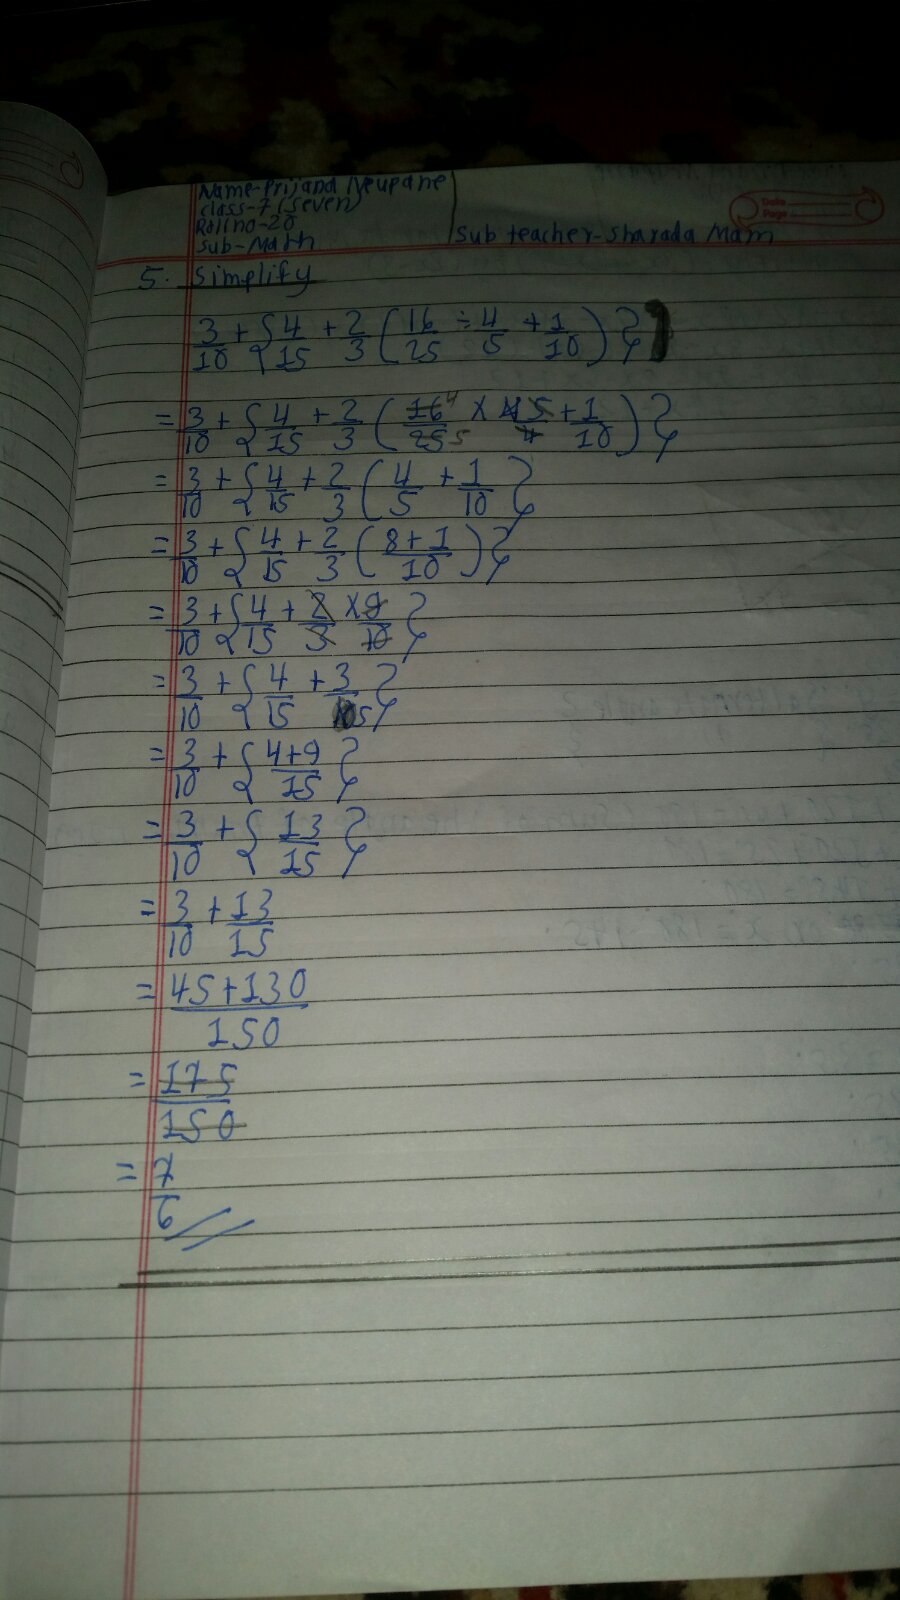 Name-Prijand Neupane
class-7 (seven)
Roll no-20
Sub-Math
Sub teacher-Sharada Mam
Date
Page
5. Simplify
3/10 + {4/15 + 2/3 (16/25 ÷ 4/5 + 1/10)}
= 3/10 + {4/15 + 2/3 (16/25 × 5/4 + 1/10)}
= 3/10 + {4/15 + 2/3 (4/5 + 1/10}
= 3/10 + {4/15 + 2/3 (8+1/10)}
= 3/10 + {4/15 + 2/3 × 9/10}
= 3/10 + {4/15 + 3/5}
= 3/10 + {4+9/15}
= 3/10 + {13/15}
= 3/10 + 13/15
= 45+130/150
= 175/150
= 7/6